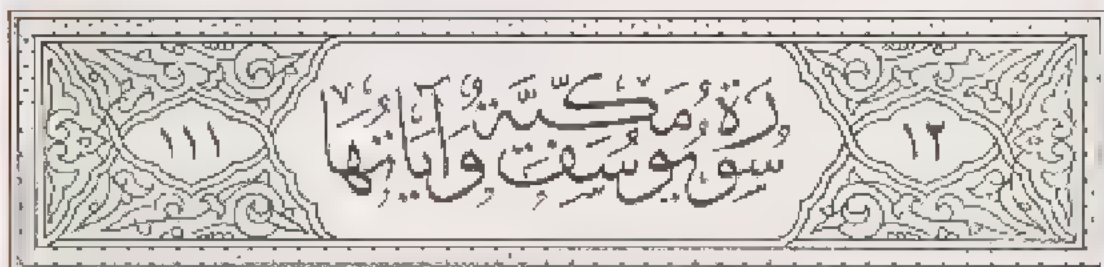 ١٢
سُورَةُ يُوسُفَ مَكِّيَّةٌ وَآيَاتُهَا
١١١